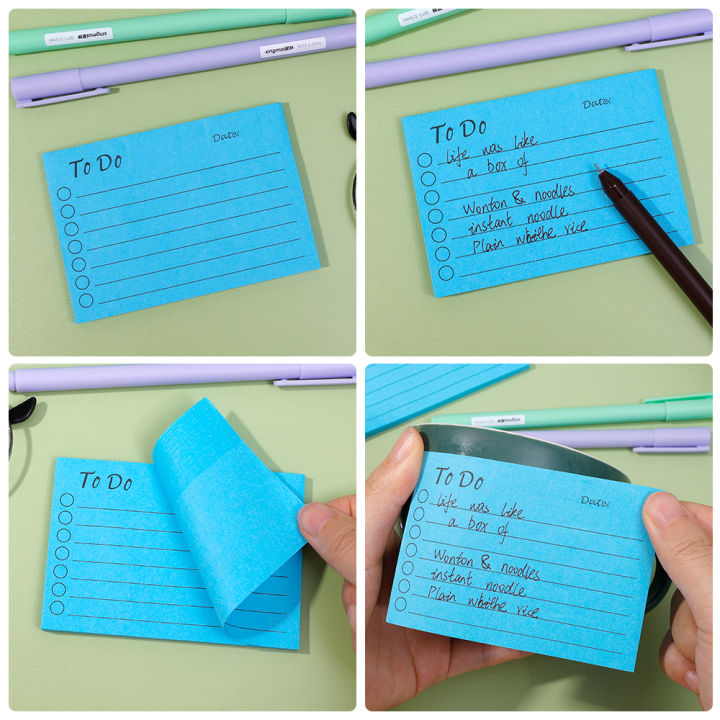 To Do
Date:
To Do
Date:
Life was like
a box of
Wonton & noodles
instant noodle
Plain white rice
To Do
To Do
Date:
Life was like
a box of
Wonton & noodles
instant noodle
Plain white rice